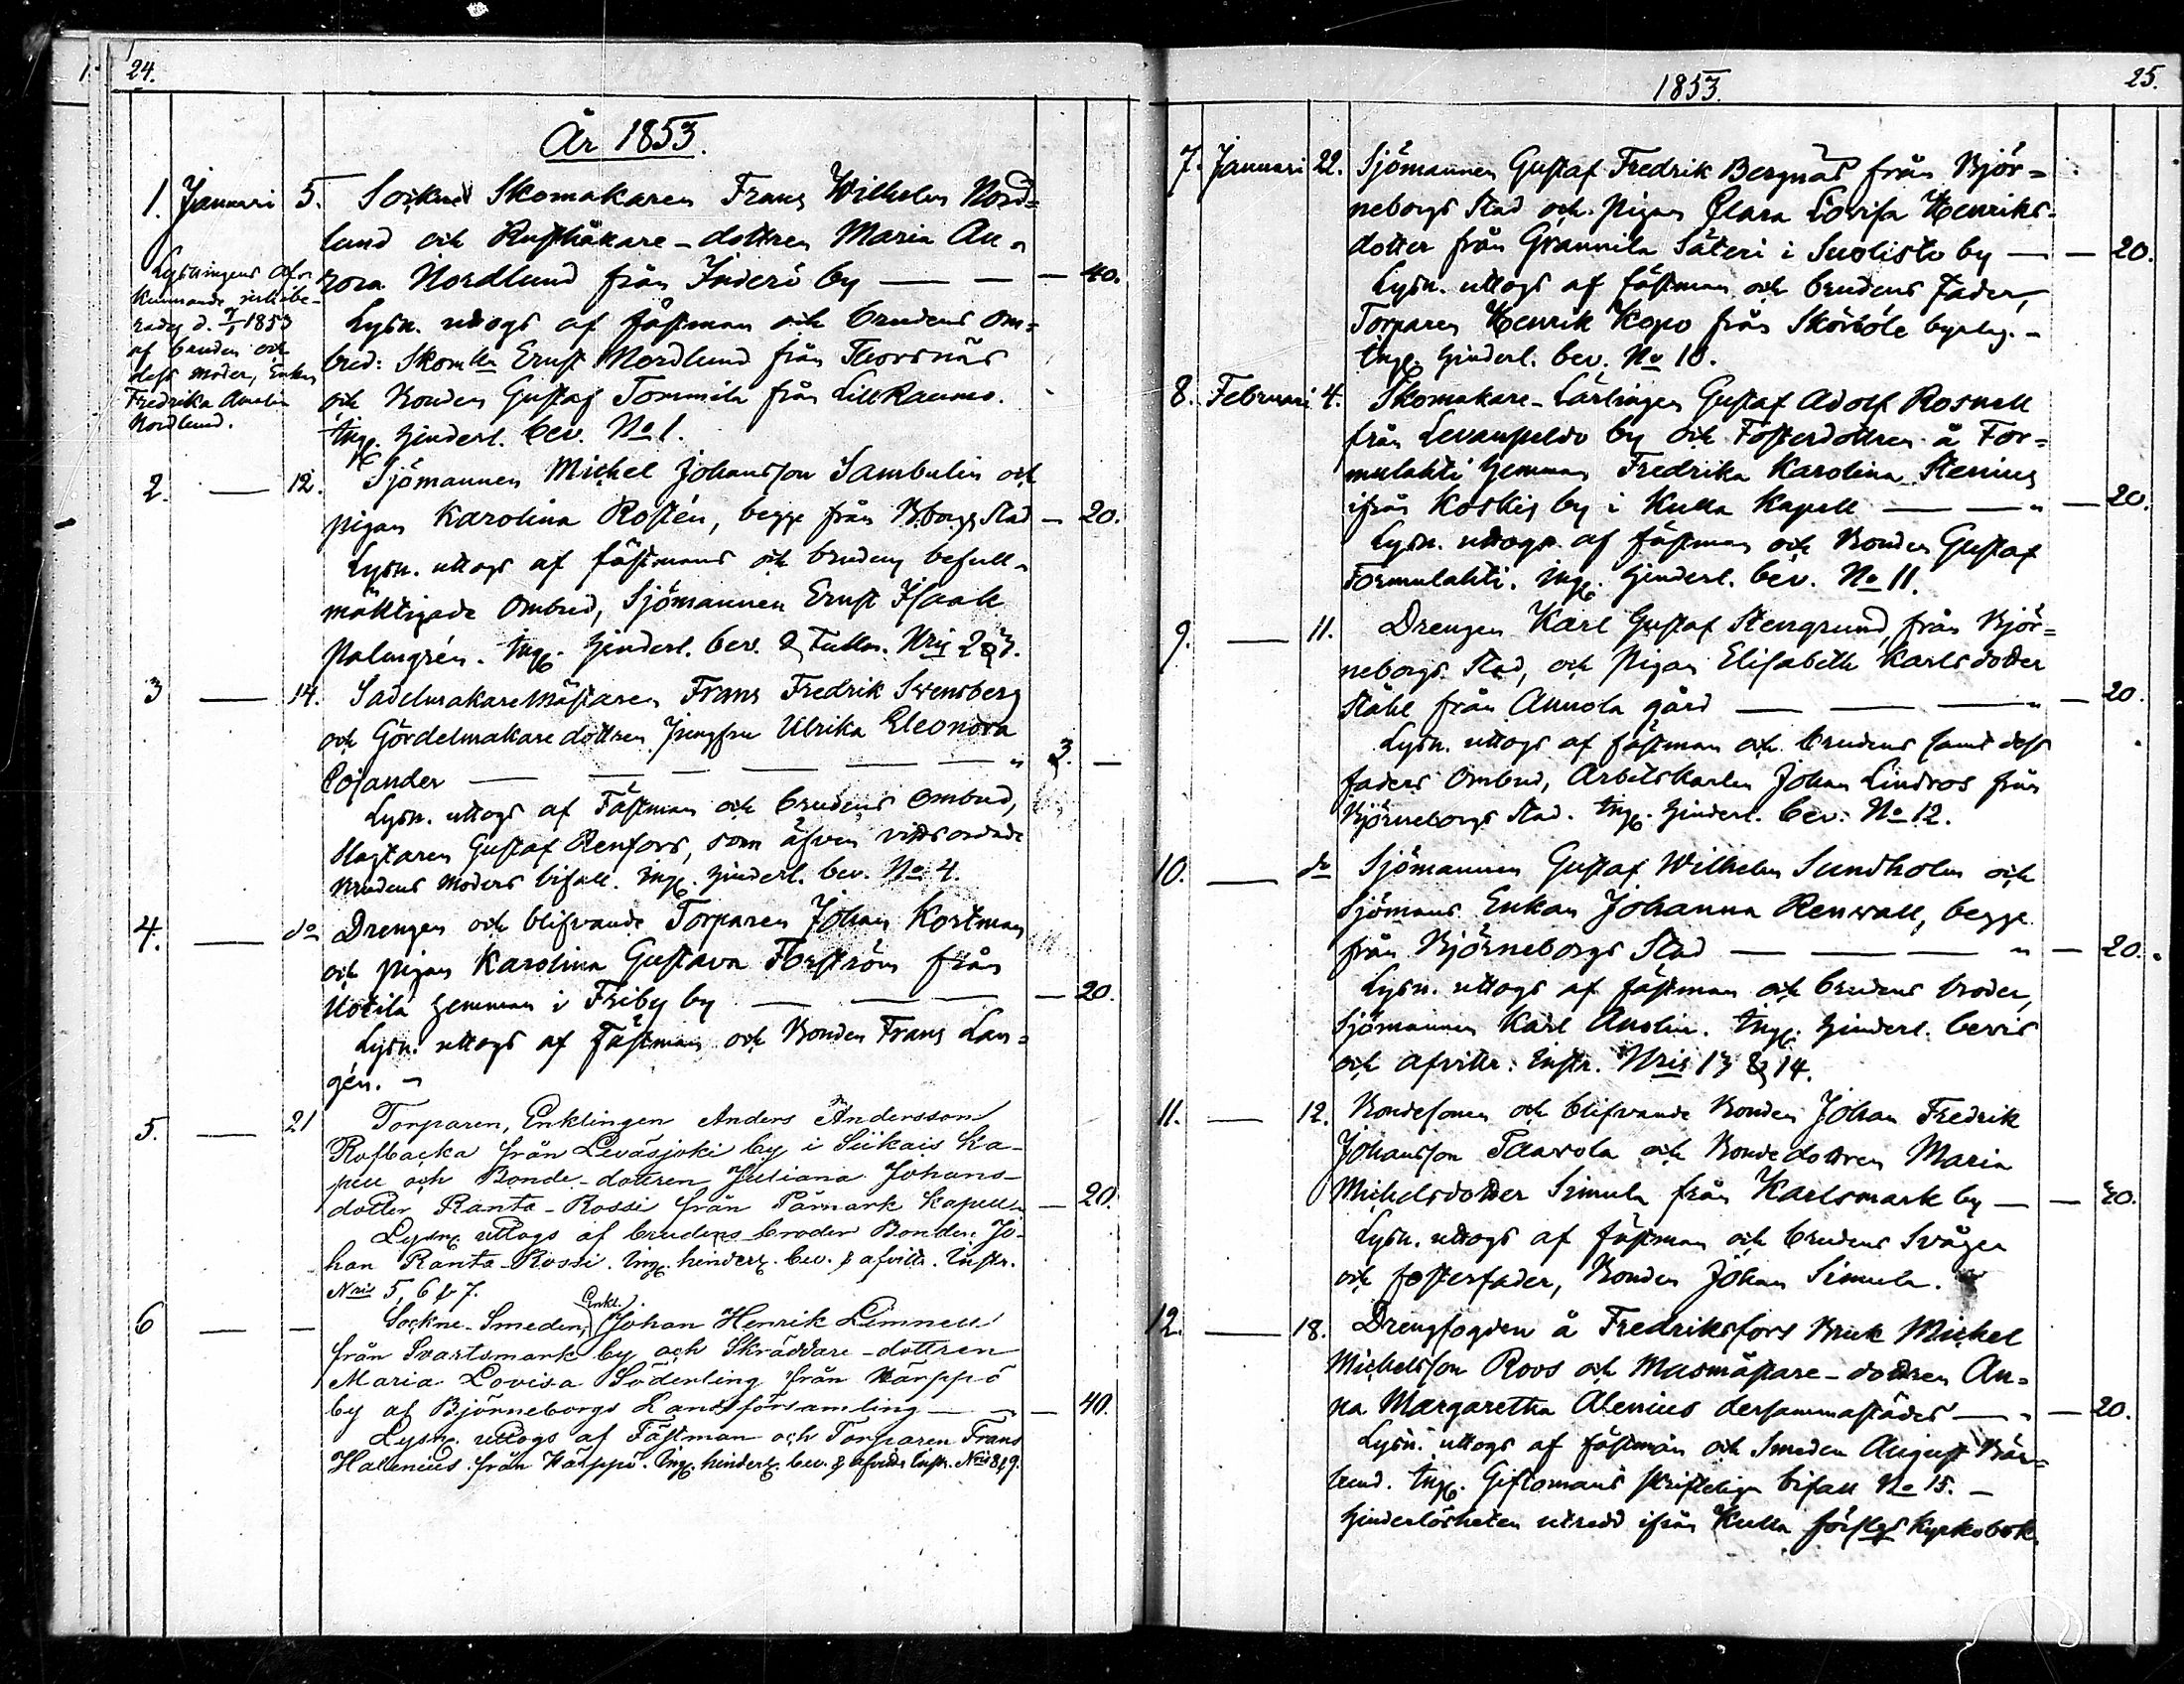 24.
År 1853.
1. Januari 5. Sockne Skomakaren Frans Wilhelm Nord=
lund och Rusthållare-dottren Maria Au-
rora Nordlund från Inderö by — — — 40.
Lysn. uttogs af fästman och brudens om=
bud: Skom. Ernst Nordlund från Thorsnäs
och Bonden Gustaf Tommila från Lill Raumo.
Ing. hinderl. bev. No 1.
Lysningens afs-
kunnande inhibe-
rades d. 7/1 1853
af bruden och
dess moder, Enkan
Fredrika Amalia
Nordlund.
2. — 12. Sjömannen Michel Johansson Sambulin och
pigan Karolina Rostén, begge från B.borgs stad — 20.
Lysn. uttogs af fästmans och brudens befull-
mäktigade Ombud, Sjömannen Ernst Isaak
Palmgrén. Ing. hinderl. bev. & Fullm. Nris 2 & 3.
3 — 14. Sadelmakare Mästaren Frans Fredrik Svensberg
och Gördelmakare dottren Jungfru Ulrika Eleonora
Cojander — — — — — — " 3. —
Lysn. uttogs af Fästman och brudens Ombud,
Slagtaren Gustaf Renfors, som äfven vittsordade
Brudens moders bifall. Ing. hinderl. bev. No 4.
4. — do Drengen och blifvande Torparen Johan Kortman
och pigan Karolina Gustava Forström från
Uotila hemman i Friby by — — — — 20.
Lysn. uttogs af Fästman och Bonden Frans Lan=
gén. —
5. — 21 Torparen, Enklingen Anders Andersson
Rofbacka från Leväsjoki by i Siikais Ka-
pell och Bonde-dottren Juliana Johans-
dotter Ranta-Rossi från Påmark Kapell — 20.
Lysn. uttogs af brudens broder Bonden Jo-
han Ranta-Rossi. Ing. hinderl. bev. & afvittr. Instr.
Nris 5, 6 & 7.
6 — — Sockne-Smeden, Enkl. Johan Henrik Limnell
från Svartsmark by och Skräddare-dottren
Maria Lovisa Söderling från Härppö
by af Björneborgs Landsförsamling — — 40.
Lysn. uttogs af Fästman och Torparen Frans
Halenius från Härppö. Ing. hinderl. bev. & afvittr. Instr. Nris 8 & 9.
1853.
25.
7. Januari 22. Sjömannen Gustaf Fredrik Bergnäs från Björ=
neborgs Stad och pigan Clara Lovisa Henriks-
dotter från Grannila Säteri i Suolisto by — — 20.
Lysn. uttogs af fästman och brudens Fader,
Torparen Henrik Kopo från Sköböle byalag. —
Ing. hinderl. bev. No 10.
8. Februari 4. Skomakare-Lärlingen Gustaf Adolf Rosnell
från Levanpeldo by och Fosterdottren å Tor=
mulahti hemman Fredrika Karolina Stenius
ifrån Koskis by i Kulla Kapell — — " — 20.
Lysn. uttogs af fästman och Bonden Gustaf
Tormulahti. Ing. hinderl. bev. No 11.
9. — 11. Drengen Karl Gustaf Stengrund, från Björ=
neborgs Stad, och pigan Elisabeth Karlsdotter
Ståhl från Annola gård — — — " — 20.
Lysn. uttogs af fästman och brudens samt dess
faders Ombud, Arbetskarlen Johan Lindros från
Björneborgs Stad. Ing. hinderl. bev. No 12.
10. — do Sjömannen Gustaf Wilhelm Sundholm och
Sjömans Enkan Johanna Renvall, begge
från Björneborgs Stad — — — " — 20.
Lysn. uttogs af fästman och brudens broder,
Sjömannen Karl Anolin. Ing. hinderl. bevis
och afvittr. Instr. Nris 13 & 14.
11. — 12. Bondesonen och blifvande Bonden Johan Fredrik
Johansson Paavola och Bondedottren Maria
Michelsdotter Simula från Karlsmark by — — 30.
Lysn. uttogs af fästman och brudens Svåger
och fosterfader, Bonden Johan Simula.
12. — 18. Drengfogden å Fredriksfors Bruk Michel
Michelsson Roos och Masmästare-dottren An=
na Margaretha Alenius dersammastädes — " — 20.
Lysn. uttogs af fästman och Smeden August Bär=
lund. Ing. Giftomans skriftliga bifall No 15. —
Hinderlösheten utredd ifrån Kulla förslgs Kyrkobok.